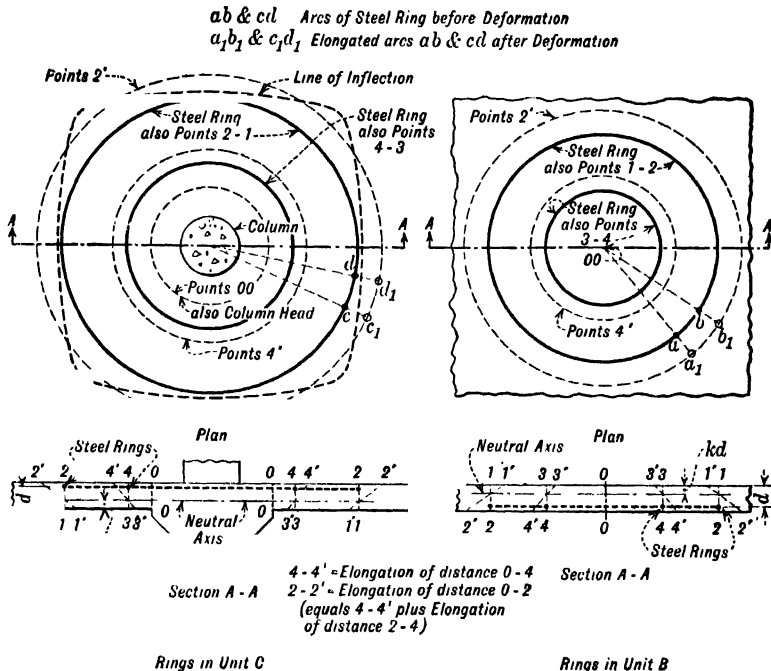 ab & cd Arcs of Steel Ring before Deformation
a₁b₁ & c₁d₁ Elongated arcs ab & cd after Deformation
Points 2'
Line of Inflection
Steel Ring
also Points 2 - 1
Steel Ring
also Points
4 - 3
A
A
Column
d
d₁
c
c₁
Points 00
also Column Head
Points 4'
Plan
Points 2'
Steel Ring
also Points 1 - 2
Steel Ring
also Points
3 - 4
00
A
A
Points 4'
b
b₁
a
a₁
Plan
Steel Rings
2' 2 4' 4 0 0 4 4' 2 2'
d
1 1' 3 3' 0 0 3'3 1'1
Neutral
Axis
Section A - A
Neutral Axis
kd
1 1' 3 3' 0 3'3 1'1
d
2' 2 4'4 0 4 4' 2 2'
Steel Rings
Section A - A
4 - 4' = Elongation of distance 0 - 4
2 - 2' = Elongation of distance 0 - 2
(equals 4 - 4' plus Elongation
of distance 2 - 4)
Rings in Unit C
Rings in Unit B